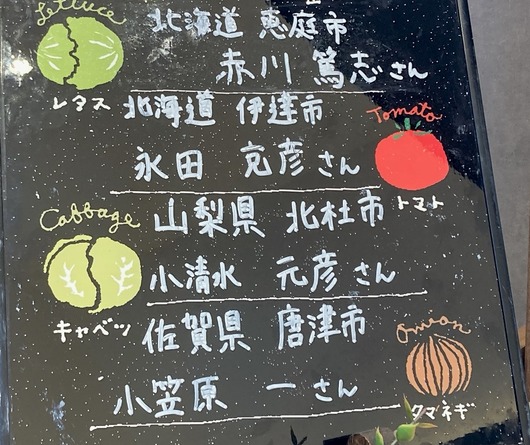 Lettuce
レタス
北海道 恵庭市
赤川 篤志さん
北海道 伊達市
永田 克彦さん
Tomato
トマト
Cabbage
キャベツ
山梨県 北杜市
小清水 元彦さん
佐賀県 唐津市
小笠原 一さん
onion
タマネギ